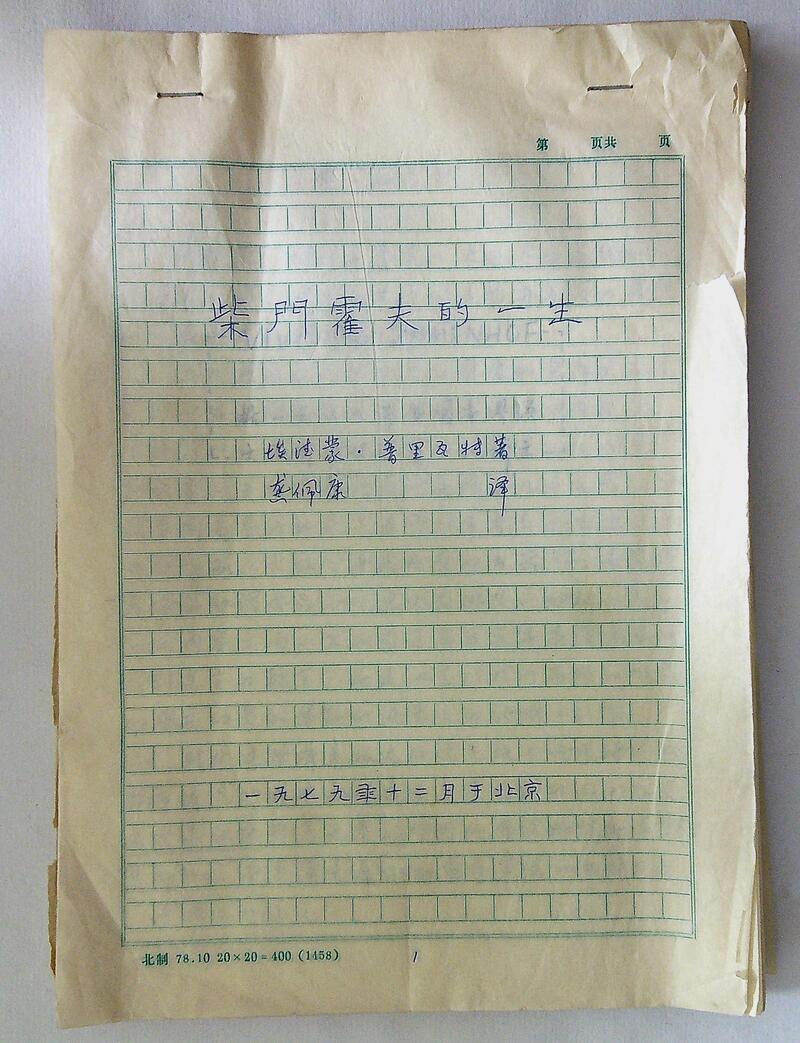 第 页共 页
柴門霍夫的一生
埃德蒙·普里瓦特著
龚佩康 译
一九七九年十二月于北京
北制 78.10 20×20=400 (1458) 1